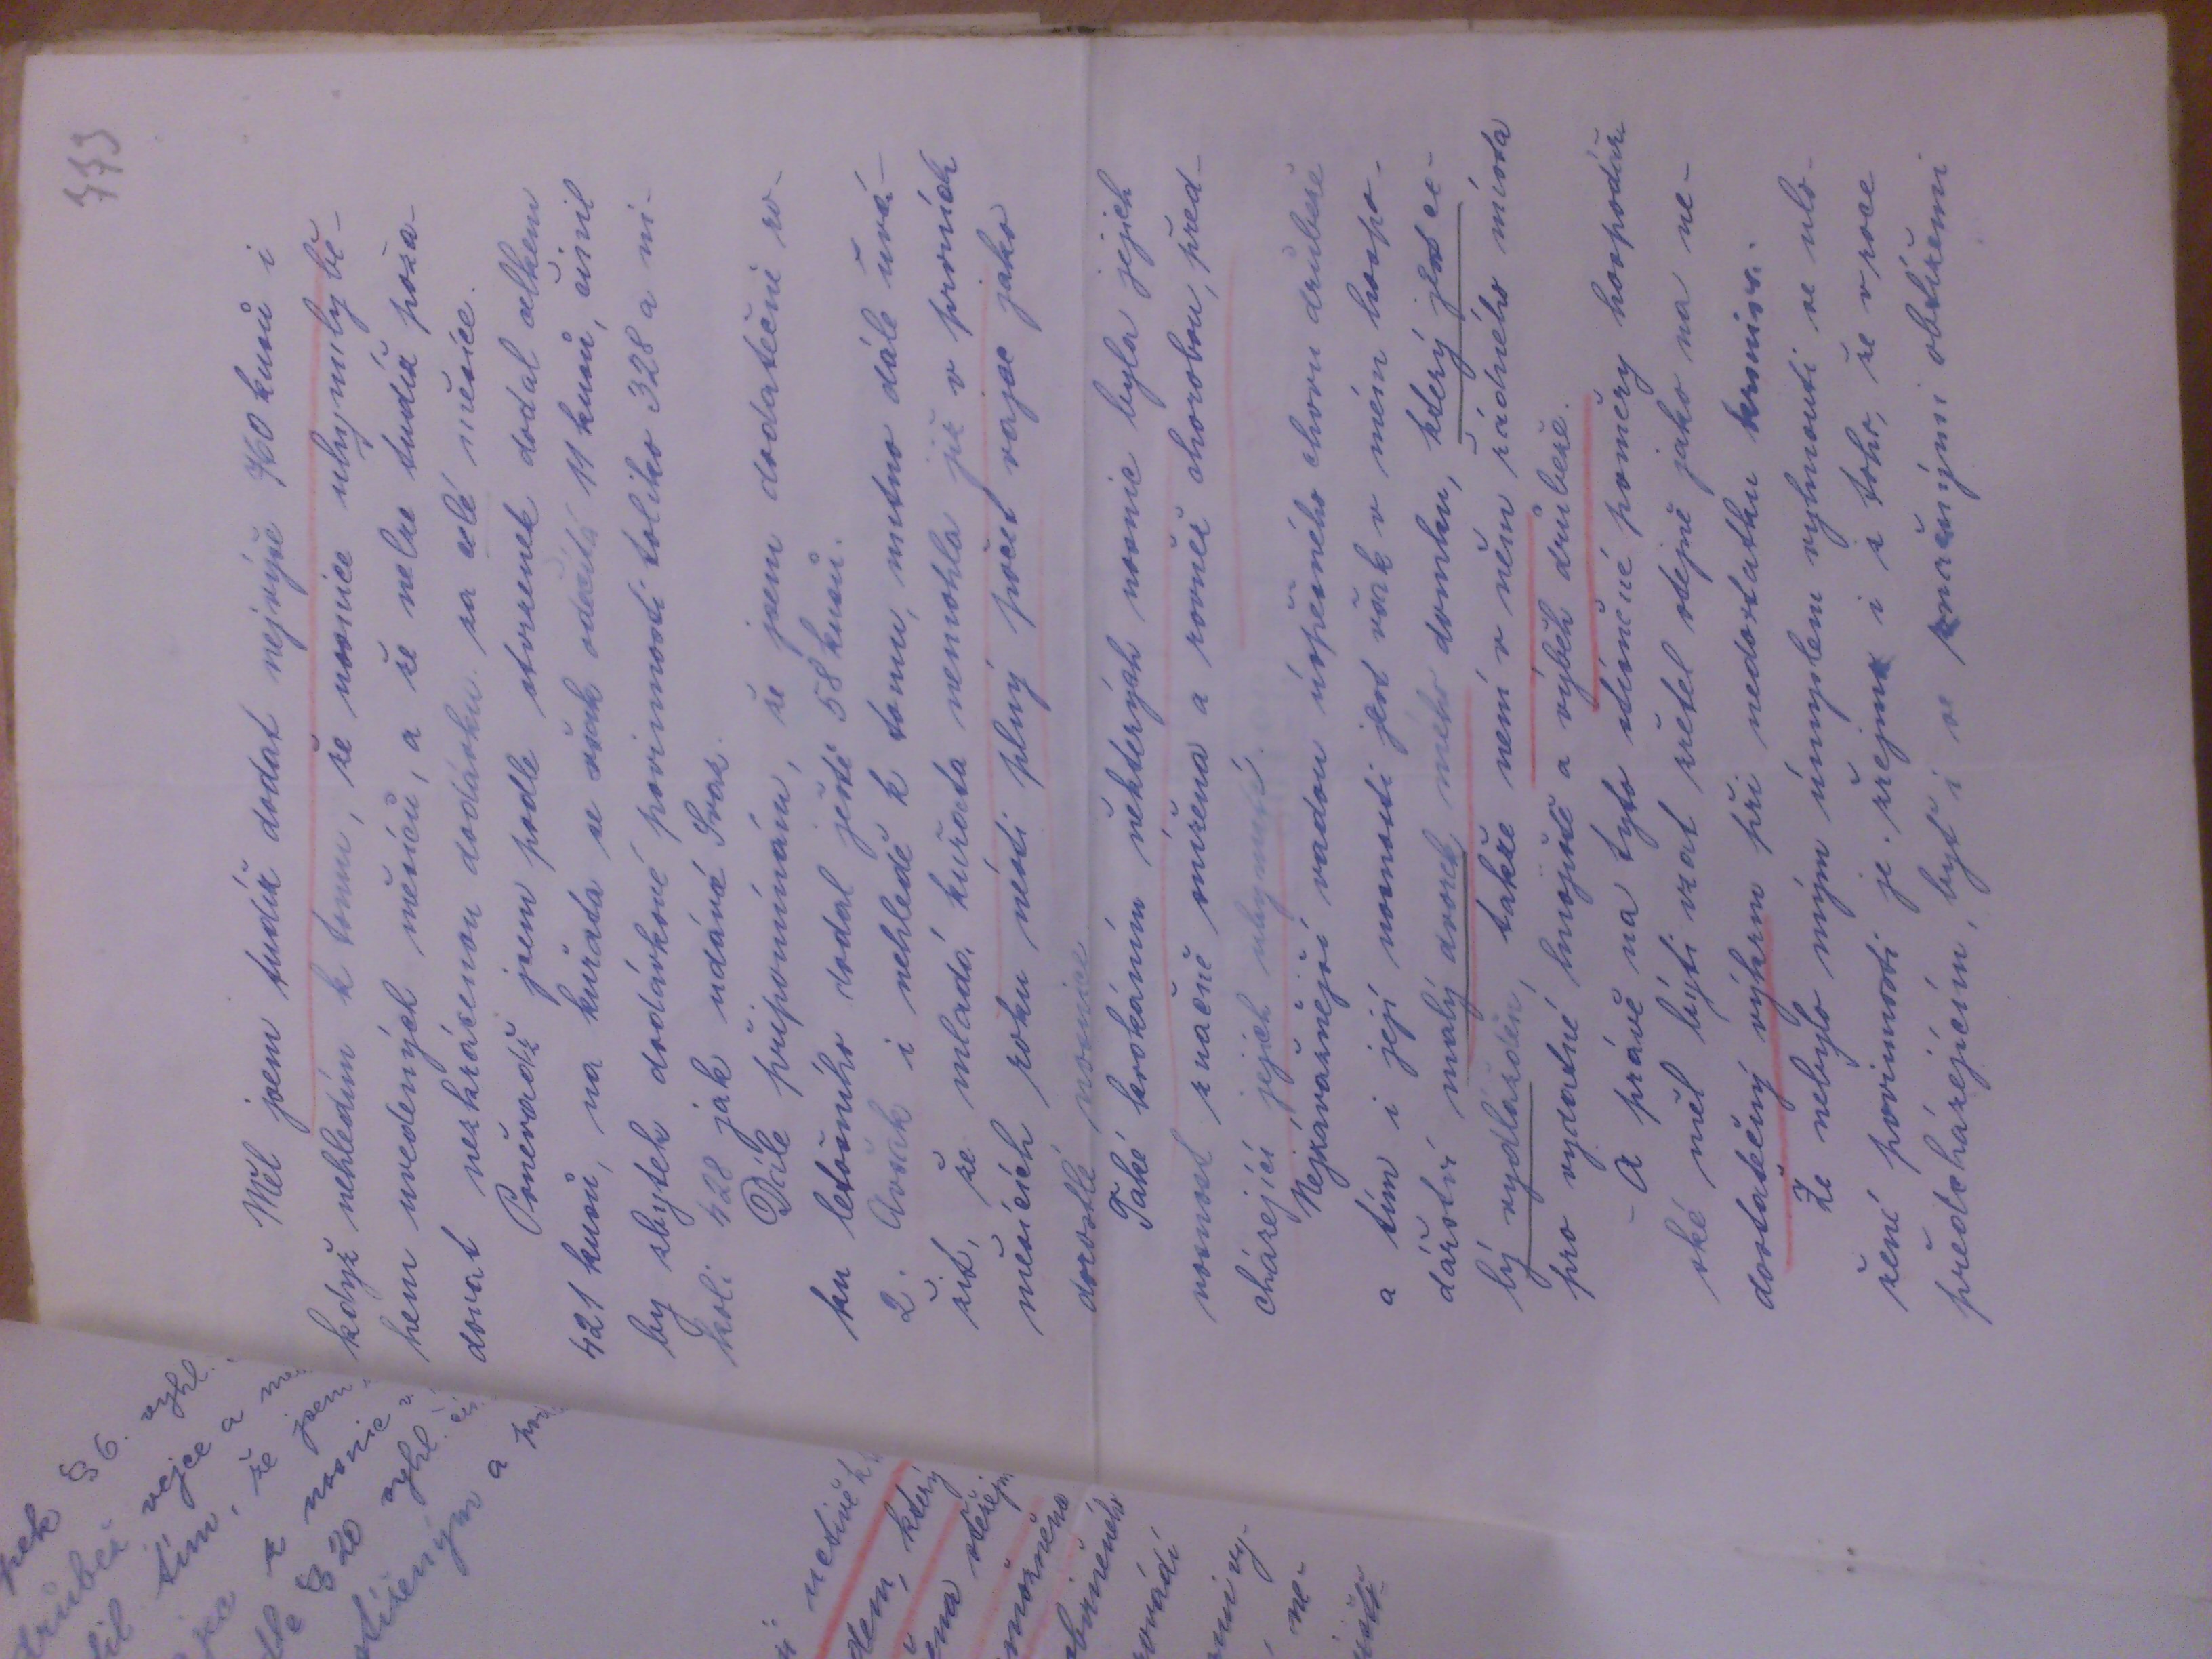 773
Měl jsem tudíž dodat nejvýše 760 kusů i
když nehledím k tomu, že nosnice uhynuly bě-
hem uvedených měsíců, a že nelze tudíž poža-
dovat nezkrácenou dodávku za celé měsíce.
Poněvadž jsem podle stvrzenek dodal celkem
421 kusů, na kuřata se však odečítá 11 kusů, činil
by zbytek dodávkové povinnosti toliko 328 a ni-
koli 428 jak udává Svaz.
Dále připomínám, že jsem dodatečně ro-
ku letošního dodal ještě 58 kusů.
2. Avšak i nehledě k tomu, nutno dále uvá-
žit, že mladá kuřata nemohla již v prvních
měsících roku nésti plný počet vajec jako
dorostlé nosnice.
Také krokáním některých nosnic byla jejich
nosnost značně snížena a rovněž chorobou, před-
cházející jejich uhynutí.
Nejzávažnější vadou úspěšného chovu drůbeže
a tím i její nosnosti jest však v mém hospo-
dářství malý dvorek mého domku, který jest ce-
lý vydlážděn, takže není v něm řádného místa
pro vydatné hnojiště a výběh drůbeže.
- A právě na tyto stísněné poměry hospodář-
ské měl býti vzat zřetel stejně jako na ne-
dostatečný výkrm při nedostatku krmiva.
Že nebylo mým úmyslem vyhnouti se ulo-
žené povinnosti je zřejmo i z toho, že v roce
předcházejícím, byť i se značnými obtížemi
§ 6. vyhl.
vejce a
tím, že jsem
z nosnic
§ 20 vyhl.
a
uctivě
který